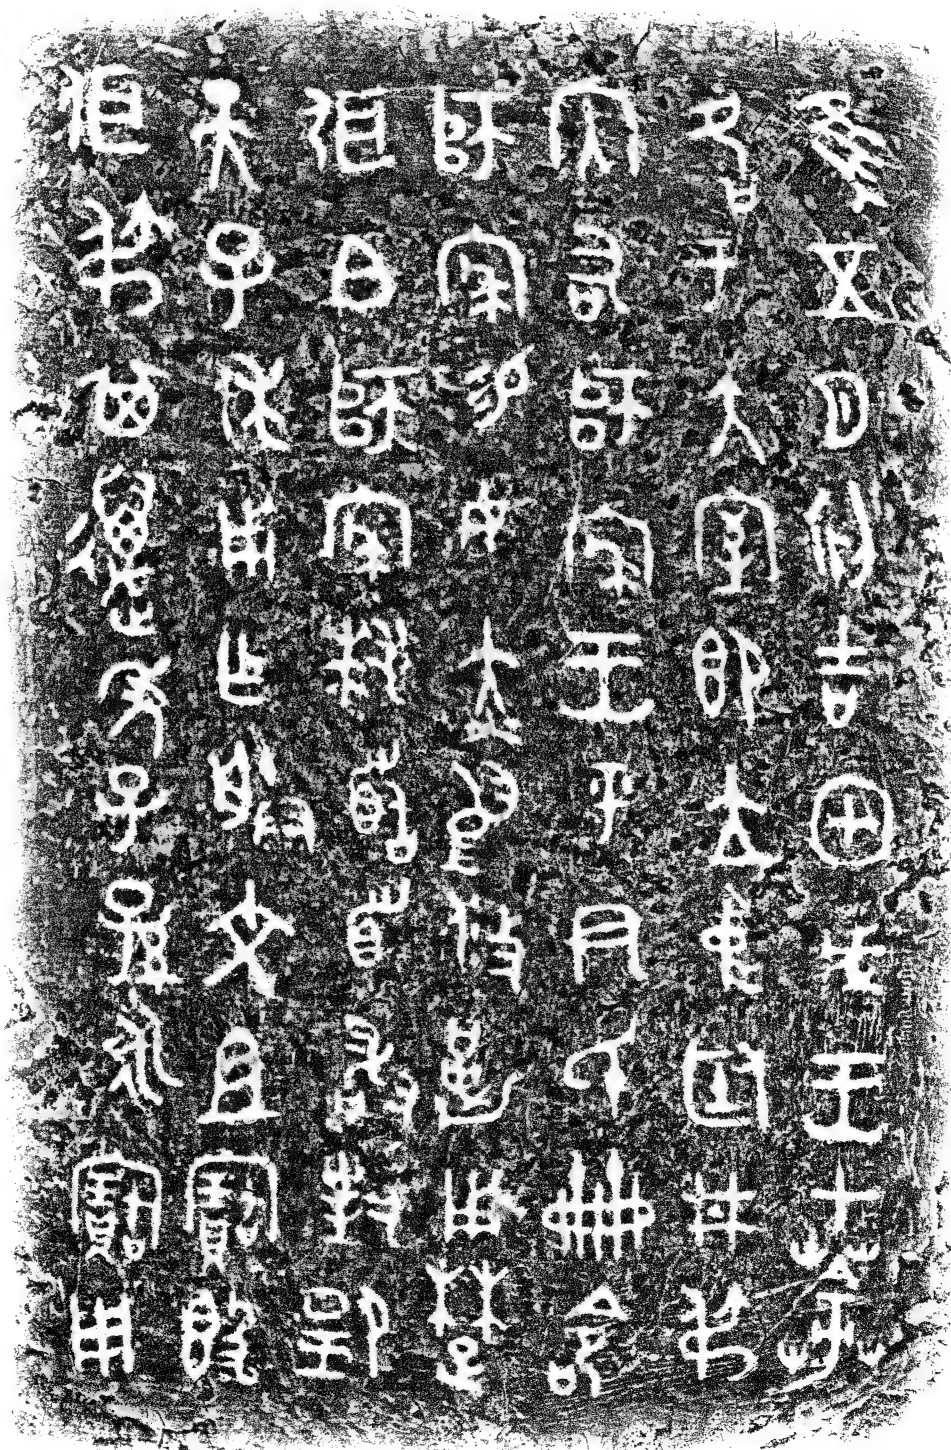 隹五月初吉甲戌王才𦮘
各于大室即立中廷井叔
内右師察王乎尹氏冊命
師察易女赤舄攸勒用楚
弭白師察拜𩒨首敢對揚
天子休用乍朕文且寶𣪘
弭叔其萬年子孫永寶用